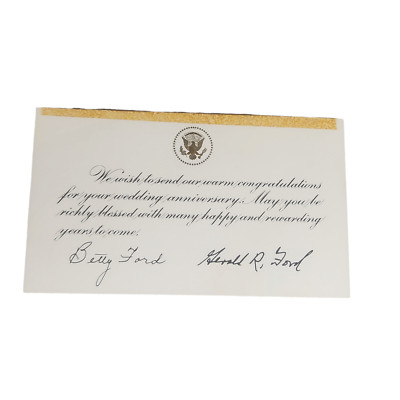 We wish to send our warm congratulations
for your wedding anniversary. May you be
richly blessed with many happy and rewarding
years to come.
Betty Ford Gerald R. Ford